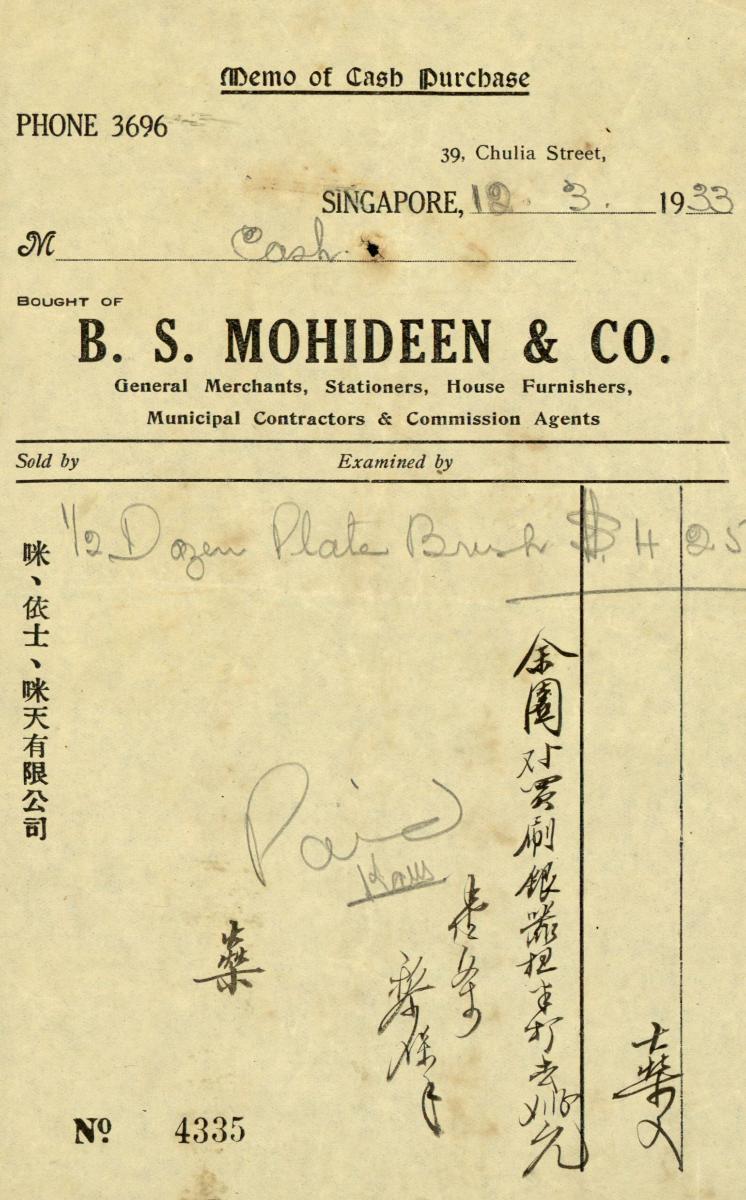 Memo of Cash Purchase
PHONE 3696
39, Chulia Street,
SINGAPORE, 12. 3. 1933
M Cash.
BOUGHT OF
B. S. MOHIDEEN & CO.
General Merchants, Stationers, House Furnishers,
Municipal Contractors & Commission Agents
Sold by Examined by
1/2 Dozen Plate Brush $ 4 25
咪、依士、咪天有限公司
余園
買刷銀器
半打去
Paid
No 4335